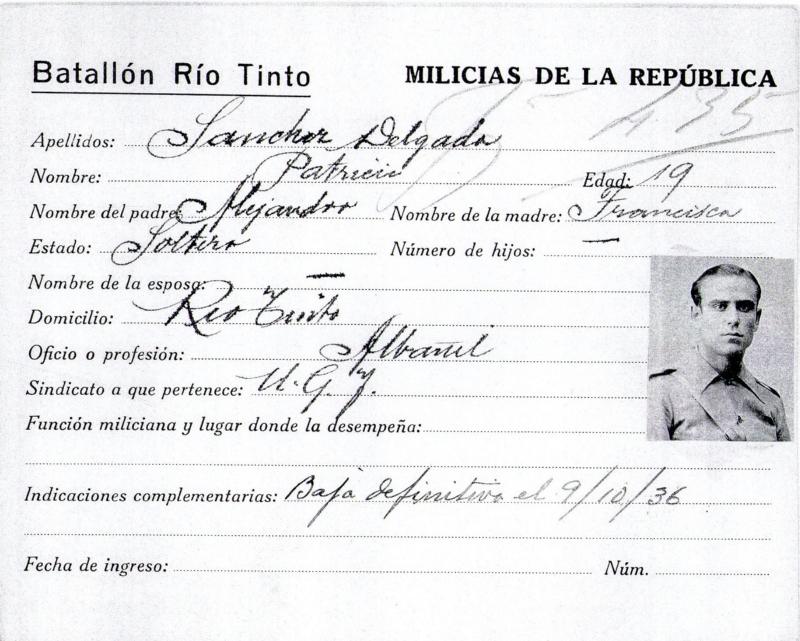 Batallón Río Tinto MILICIAS DE LA REPÚBLICA
435
Apellidos: Sanchez Delgado
Nombre: Patricio Edad: 19
Nombre del padre: Alejandro Nombre de la madre: Francisca
Estado: Soltero Número de hijos: —
Nombre de la esposa: —
Domicilio: Rio Tinto
Oficio o profesión: Albañil
Sindicato a que pertenece: U. G. T.
Función miliciana y lugar donde la desempeña:
Indicaciones complementarias: Baja definitiva el 9/10/36
Fecha de ingreso: Núm.